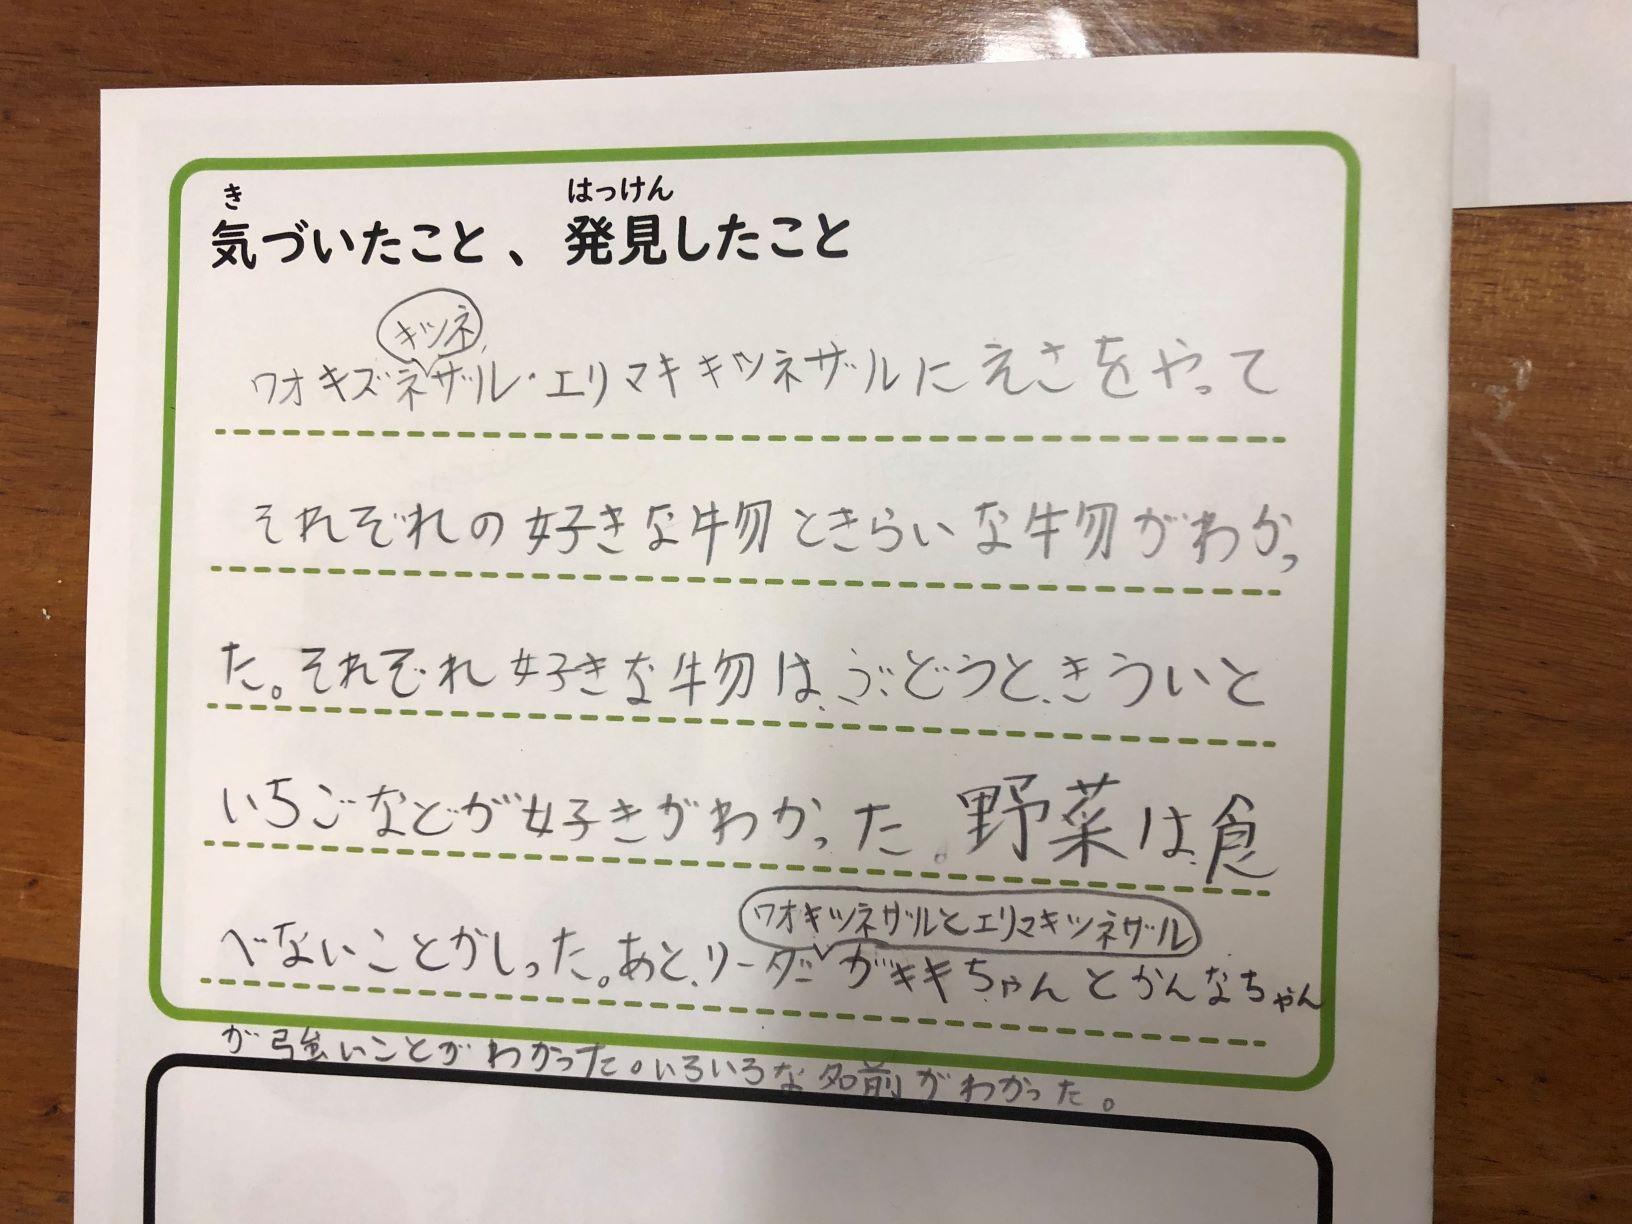 き はっけん
気づいたこと、発見したこと
キツネ
ワオキズネザル・エリマキキツネザルにえさをやって
それぞれの好きな物ときらいな物がわかっ
た。それぞれ好きな物は、ぶどうと、きういと
いちごなどが好きがわかった。野菜は、食
べないことがしった。あと、リーダーがキキちゃんとかんなちゃん
ワオキツネザルとエリマキツネザル
が強いことがわかった。いろいろな名前がわかった。